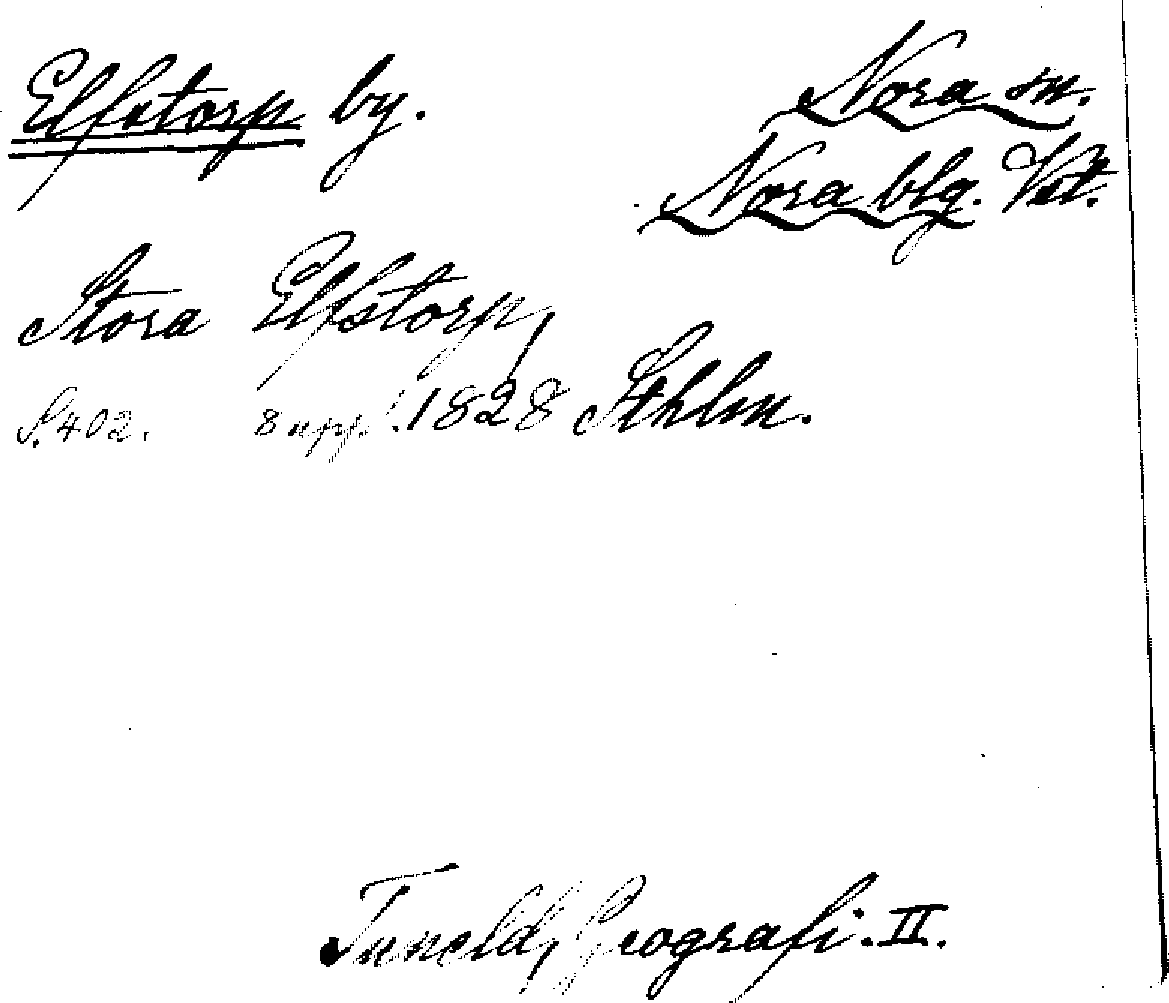 Elfstorp by.
Nora sn.
Nora blg. Vst.
Stora Elfstorp,
S. 402. 8 upp. 1828 Sthlm.
Tuneld, Geografi. II.